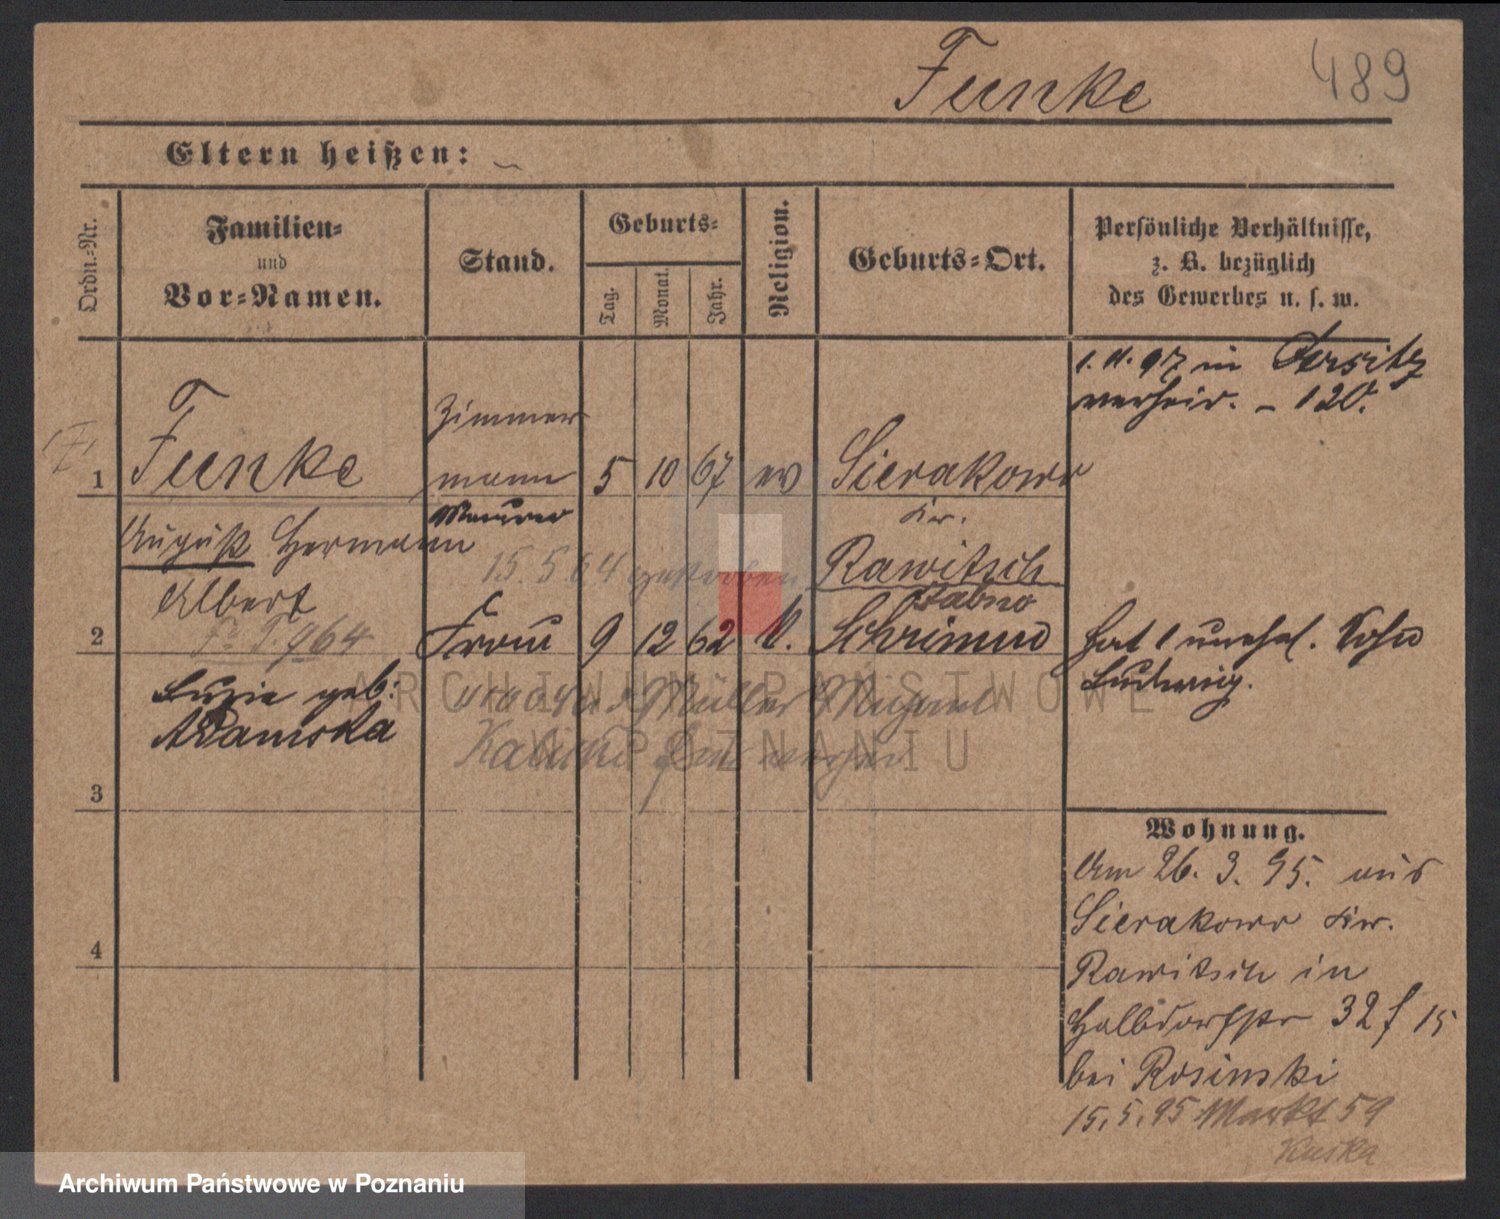 Funke
489
Eltern heißen:
Ordn.-Nr.
Familien-
und
Vor-Namen.
Stand.
Geburts-
Tag.
Monat.
Jahr.
Religion.
Geburts-Ort.
Persönliche Verhältnisse,
z. B. bezüglich
des Gewerbes u. s. w.
1. 11. 97 in Jersitz
verheir. - 120.
1
Funke
Zimmer
mann
5 10 67 ev
Sierakowo
Maurer
Kr.
August Hermann
Rawitsch
15. 5 64 gestorben
Albert
Xabno
2
964
Frau 9 12 62 k. Schrimm
hat 1 unehel. Sohn
Ludwig.
Luzie geb:
Adamska
Müller
3
4
Wohnung.
Am 26. 3. 95. aus
Sierakowo Kr.
Rawitsch in
Halbdorfstr 32 f 15
bei Rosinski
15. 5. 95 Markt 59
ARCHIWUM PAŃSTWOWE
W POZNANIU
Archiwum Państwowe w Poznaniu